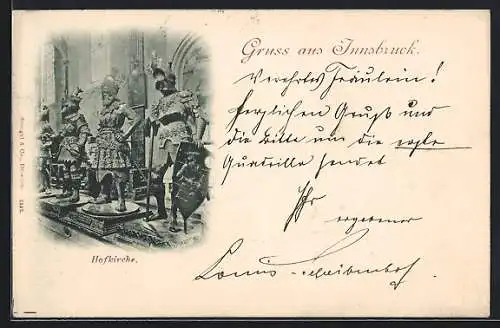 Gruss aus Innsbruck.
Verehrtes Fräulein!
Herzlichen Gruß und
die Bitte um die erste
Quadrille sendet
Ihr
ergebener
Louis
Hofkirche.
Stengel & Co., Dresden.